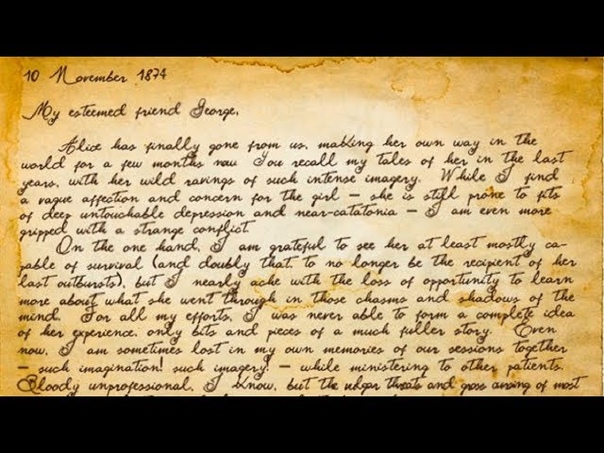 10 November 1874
My esteemed friend George,
Alice has finally gone from us, making her own way in the
world for a few months now You recall my tales of her in the last
years, with her wild ravings of such intense imagery. While I find
a vague affection and concern for the girl – she is still prone to fits
of deep untouchable depression and near-catatonia – I am even more
gripped with a strange conflict.
On the one hand, I am grateful to see her at least mostly ca-
pable of survival (and doubly that, to no longer be the recipient of her
last outbursts), but I nearly ache with the loss of opportunity to learn
more about what she went through in those chasms and shadows of the
mind. For all my efforts, I was never able to form a complete idea
of her experience, only bits and pieces of a much fuller story. Even
now, I am sometimes lost in my own memories of our sessions together
– such imagination! such imagery! – while ministering to other patients.
Bloody unprofessional, I know, but the vulgar threats and gross of most